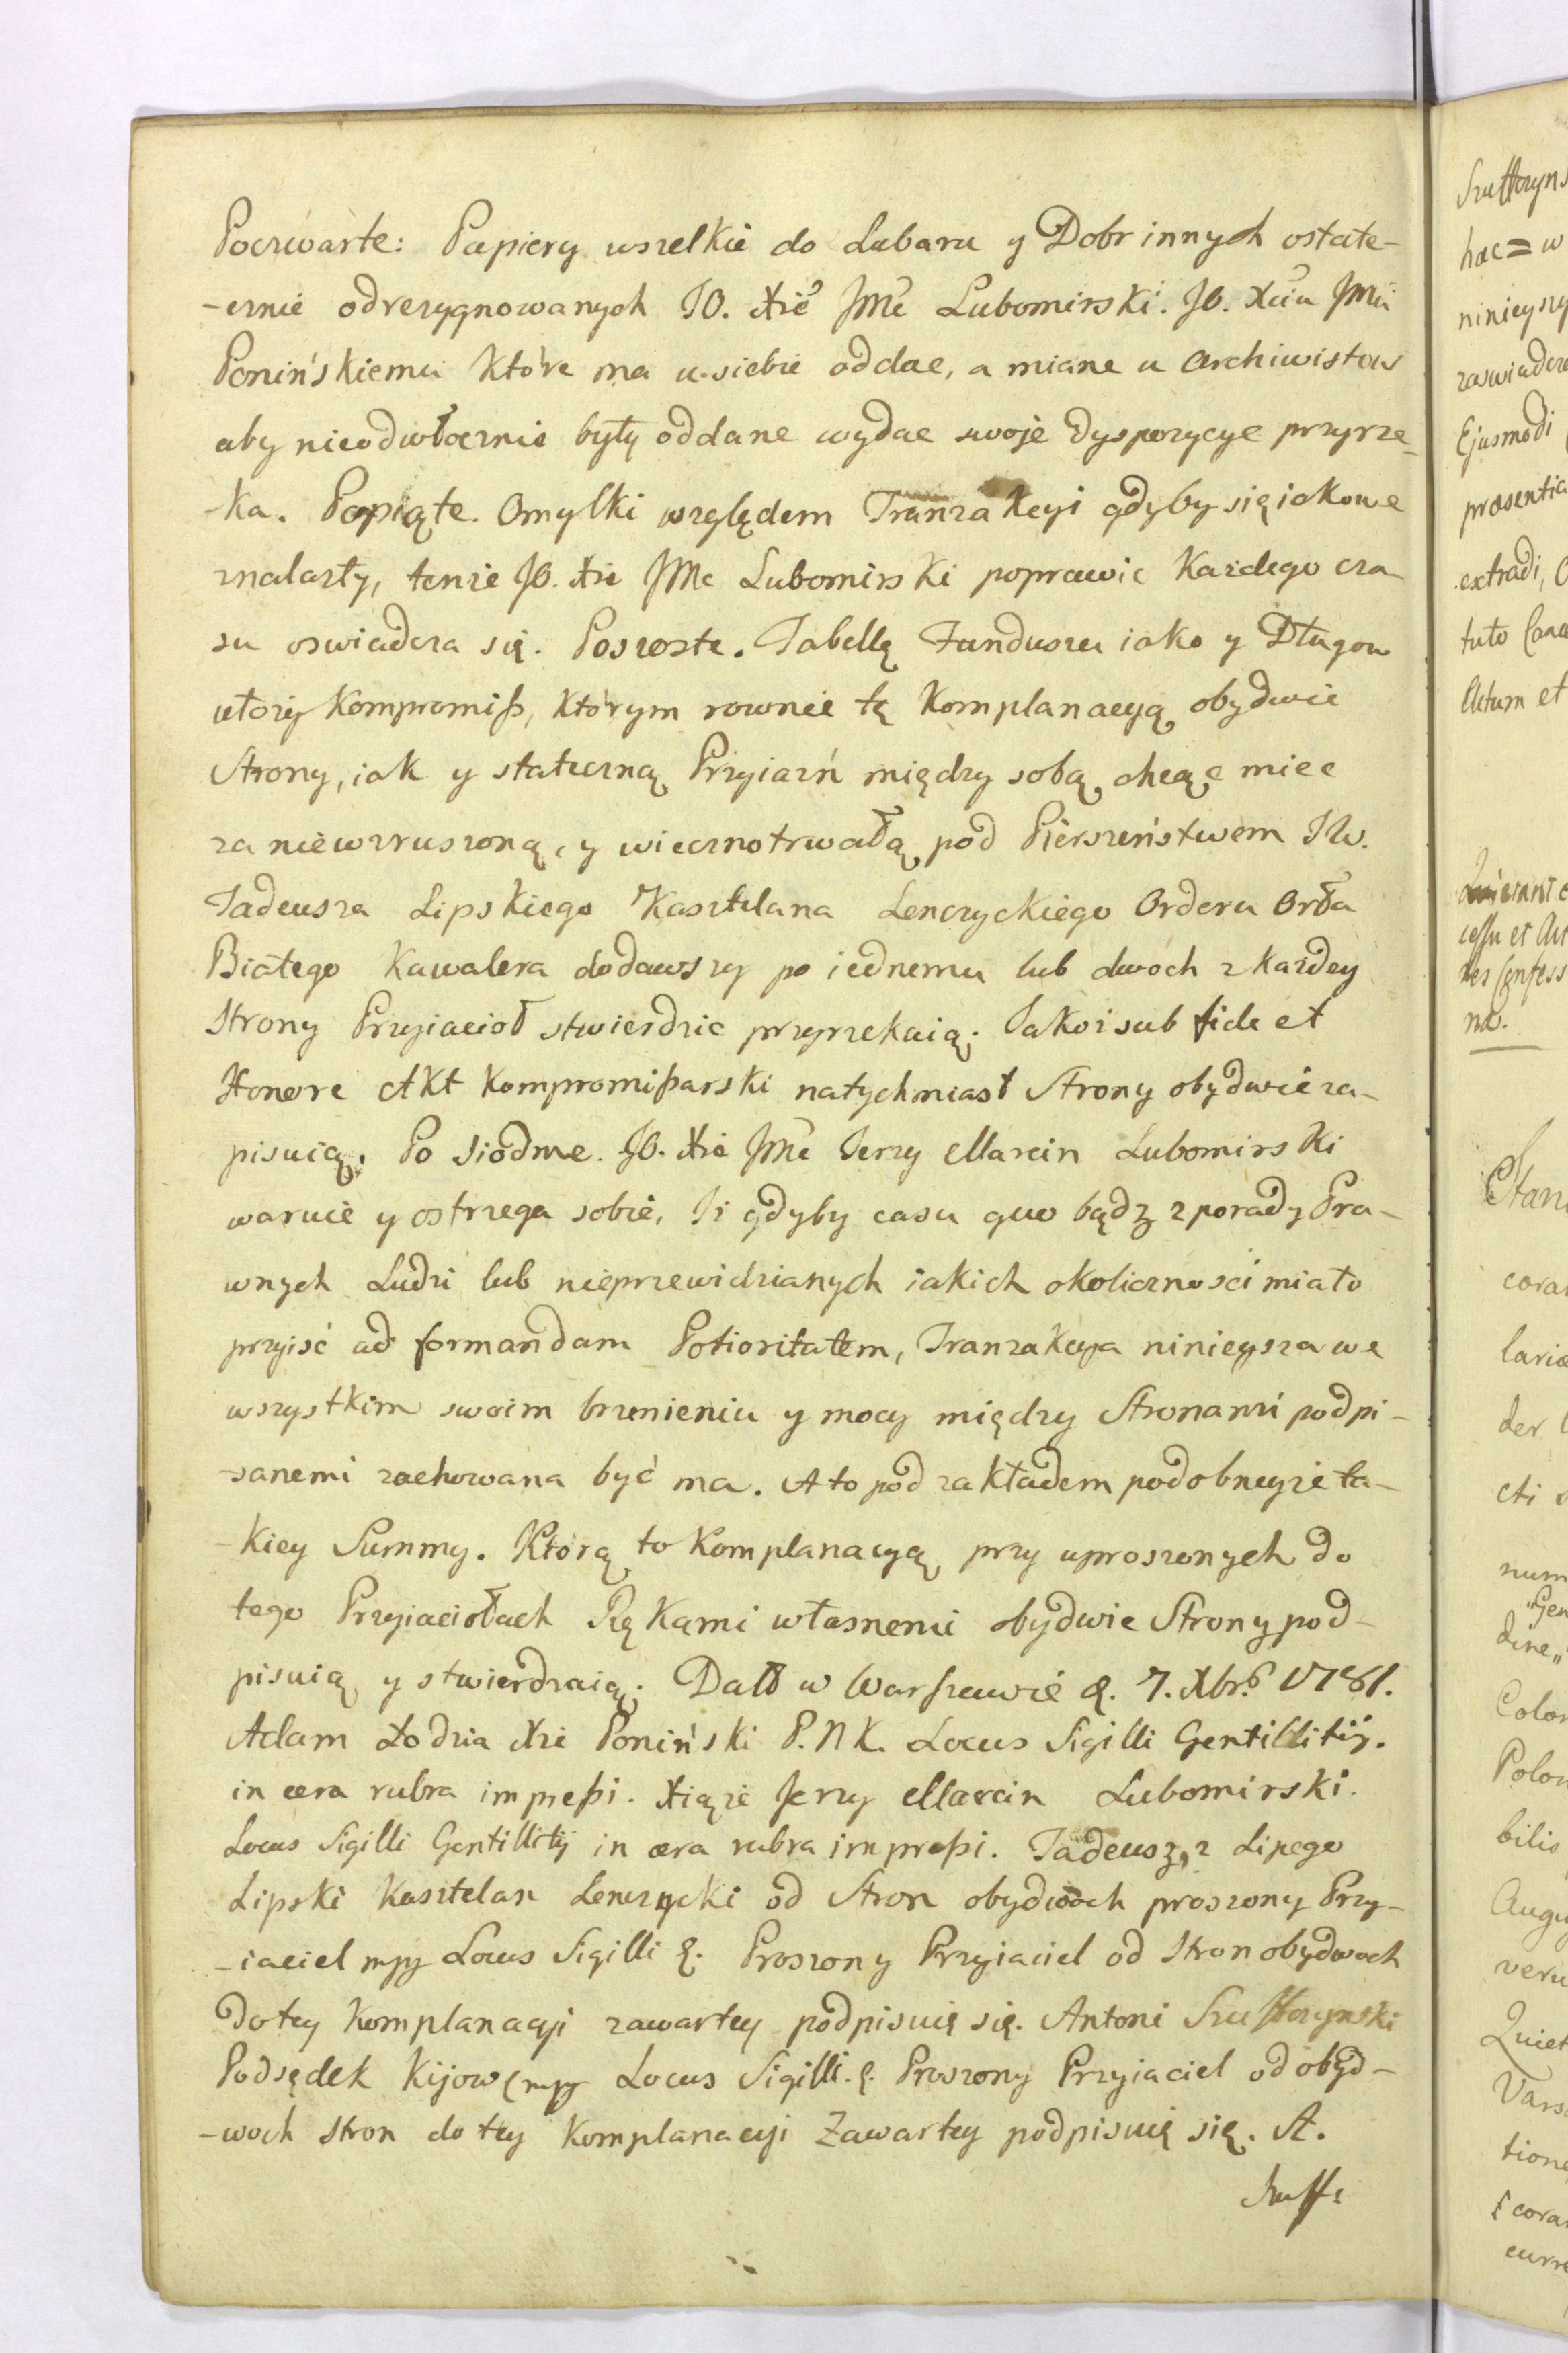 Poczwarte: Papiery wszelkie do Lubaru y Dobr innych ostate-
-cznie odrezygnowanych JO. Xże JMć Lubomirski. JO. Xciu JMci
Ponińskiemu które ma u siebie oddac, a miane u Archiwistow
aby nieodwłocznie były oddane wydac swoje Dyspozycye przyrze-
-ka. Popiąte. Omylki względem Tranzakcyi gdyby się iakowe
znalazły, tenże JO. Xże JMc Lubomirski poprawic Każdego cza-
su oswiadcza się. Poszoste. Tabellę Funduszu iako y Długow
ułoży Kompromiß, którym rownie tę Komplanacyą obydwie
Strony, iak y stateczną Przyiaźń między sobą chcąc miec
za niewzruszoną, y wiecznotrwałą pod Pierszeństwem JW.
Tadeusza Lipskiego Kasztelana Lenczyckiego Orderu Orła
Białego Kawalera dodawszy po iednemu lub dwoch z każdey
Strony Przyiacioł stwierdzic przyrzekaią. Jakoż sub fide et
Honore Akt Kompromißarski natychmiast Strony obydwie za-
pisuią. Po siodme. JO. Xże JMć Jerzy Marcin Lubomirski
waruie y ostrzega sobie, Iż gdyby casu quo bądz z porady Pra-
wnych Ludzi lub nieprzewidzianych iakich okoliczności miało
przyisć ad formandam Potioritatem, Tranzakcya ninieysza we
wszystkim swoim brzmieniu y mocy między Stronami podpi-
-sanemi zachowana być ma. A to pod zakładem podobneyże ta-
-kiey Summy. Którą to Komplanacyą przy uproszonych do
tego Przyiaciołach Rękami własnemi obydwie Strony pod-
pisuią y stwierdzaią. Datt w Warszawie d. 7. Xbr. 1781.
Adam Łodzia Xże Poniński P.N.K. Locus Sigilli Gentillitij.
in cera rubra impreßi. Xiąże Jerzy Marcin Lubomirski.
Locus Sigilli Gentillitij in cera rubra impreßi. Tadeusz, z Lipego
Lipski Kasztelan Lenczycki od Stron obydwoch proszony Przy-
-iaciel mpp Locus Sigilli &. Proszony Przyiaciel od Stron obydwoch
do tey Komplanacyi zawartey podpisuię się. Antoni
Podsędek Kijow mpp Locus Sigilli. &. Proszony Przyiaciel od obyd-
-woch stron do tey Komplanacyi Zawartey podpisuię się. A.
hac = w
ninieyszy
Ejusmodi
extradi,
Actum et
no.
Polon
bilis
Augu